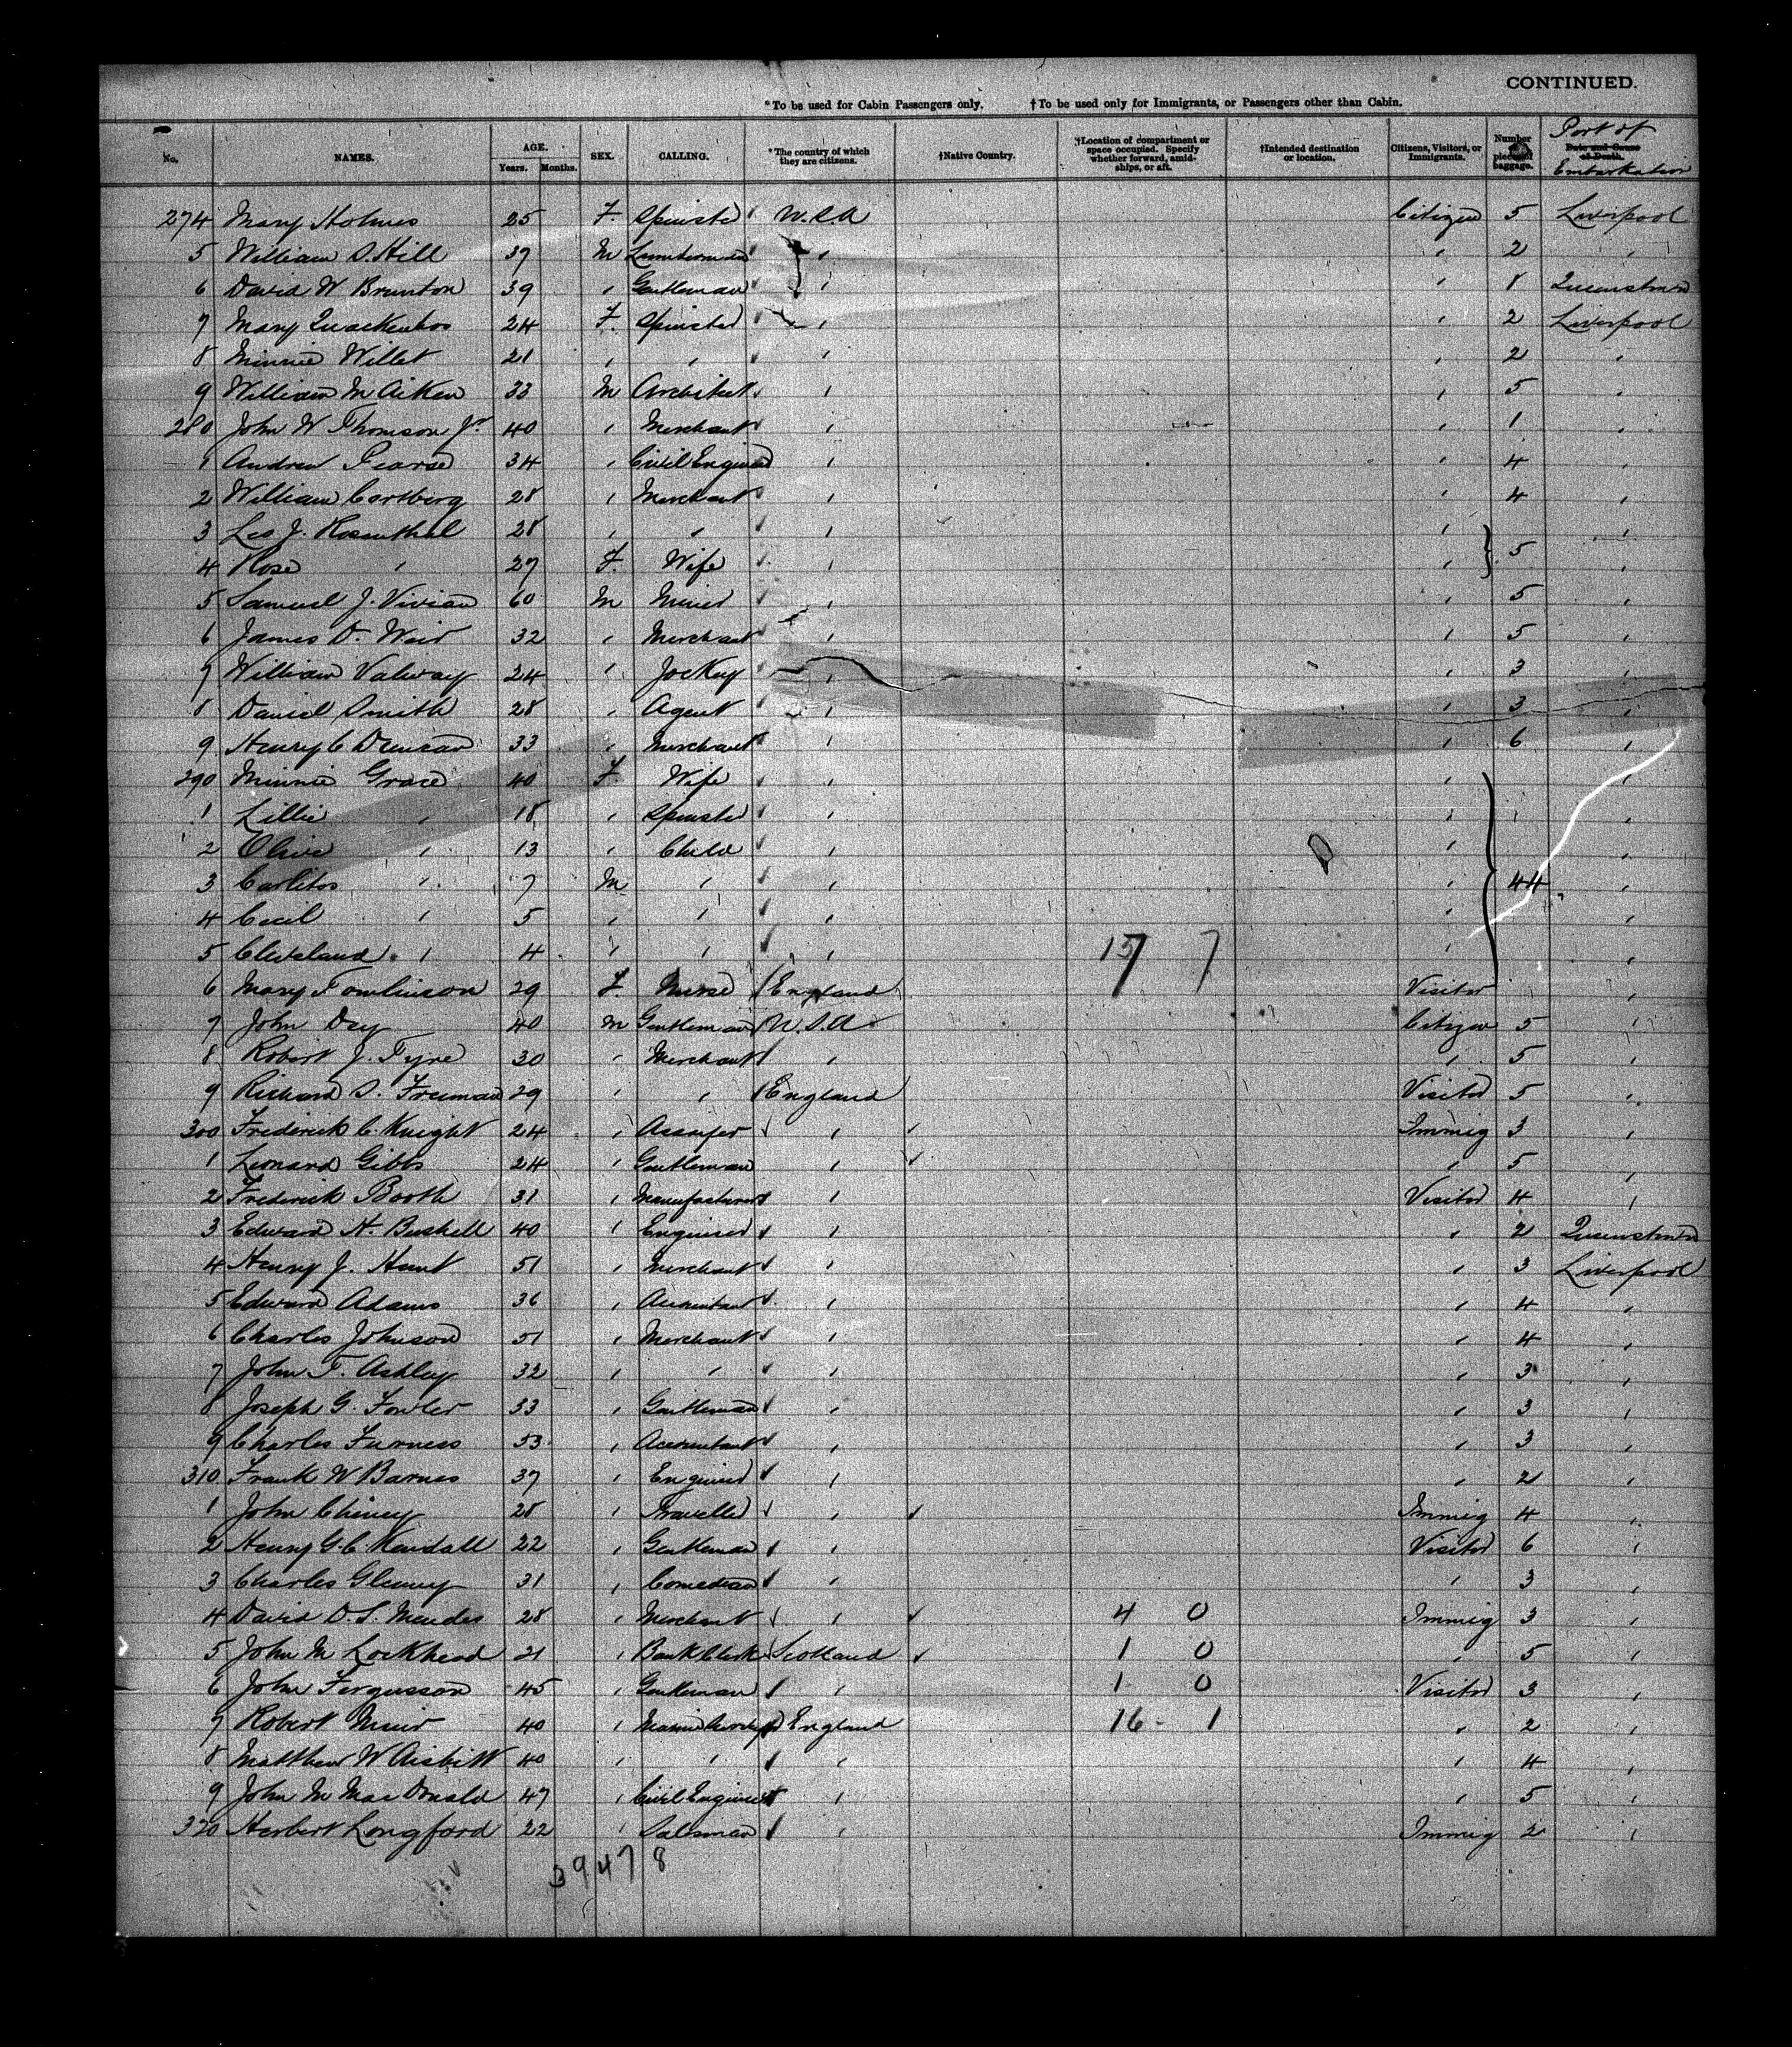 CONTINUED.
*To be used for Cabin Passengers only. †To be used only for Immigrants, or Passengers other than Cabin.
No. NAMES. AGE. Years. Months. SEX. CALLING. *The country of which they are citizens. †Native Country. †Location of compartment or space occupied. Specify whether forward, amidships, or aft. †Intended destination or location. Citizens, Visitors, or Immigrants. Number pieces of baggage. Date and Cause of Death. Port of Embarkation
274 Mary Holmes 25 F. Spinster U.S.A Citizen 5 Liverpool
5 William S. Hill 37 M Lumberman " " 2 "
6 David W Brunton 39 " Gentleman " " 1 Queenstown
7 Mary Quackenbos 24 F. Spinster " " 2 Liverpool
8 Minnie Willet 21 " " " " 2 "
9 William M Aiken 33 M Architect " " 5 "
280 John W Thomson Jr 40 " Merchant " " 1 "
1 Andrew Pearse 34 " Civil Engineer " " 4 "
2 William Cortberg 28 " Merchant " " 4 "
3 Leo J. Rosenthal 28 " " " " "
4 Rose " 27 F. Wife " " 5 "
5 Samuel J. Vivian 60 M Miner " " 5 "
6 James D. Weir 32 " Merchant " " 5 "
7 William Valway 24 " Jockey " " 3 "
8 Daniel Smith 28 " Agent " " 3 "
9 Henry C Duncan 33 " Merchant " " 6 "
290 Minnie Grace 40 F. Wife " " "
1 Lillie " 18 " Spinster " " "
2 Olive " 13 " Child " " "
3 Carlitos " 7 M " " " 44 "
4 Cecil " 5 " " " " "
5 Cleveland " 4 " " " 157 7 " "
6 Mary Tomlinson 29 F. Nurse England Visitor "
7 John Day 40 M Gentleman U.S.A Citizen 5 "
8 Robert J. Fyre 30 " Merchant " " 5 "
9 Richard S. Freeman 29 " " England Visitor 5 "
300 Frederick C. Knight 24 " Assayer " Immig 3 "
1 Leonard Gibbs 24 " Gentleman " " 5 "
2 Frederick Booth 31 " Manufacturer " Visitor 4 "
3 Edward H. Bushell 40 " Engineer " " 2 Queenstown
4 Henry J. Hunt 51 " Merchant " " 3 Liverpool
5 Edward Adams 36 " Accountant " " 4 "
6 Charles Johnson 51 " Merchant " " 4 "
7 John F. Ashley 32 " " " " 3 "
8 Joseph G. Fowler 33 " Gentleman " " 3 "
9 Charles Furness 53 " Accountant " " 3 "
310 Frank W Barnes 37 " Engineer " " 2 "
1 John Chiney 28 " Traveller " Immig 4 "
2 Henry G. C. Kendall 22 " Gentleman " Visitor 6 "
3 Charles Glenny 31 " Comedian " " 3 "
4 David D. S. Mendes 28 " Merchant " 4 0 Immig 3 "
5 John M Lockhead 21 " Bank Clerk Scotland 1 0 " 5 "
6 John Fergusson 45 " Gentleman " 1 0 Visitor 3 "
7 Robert Muir 40 " England 16 - 1 " 2 "
8 Matthew W Aisbitt 40 " " " " 4 "
9 John M MacDonald 47 " Civil Engineer " " 5 "
320 Herbert Longford 22 " Salesman " Immig 2 "
39478